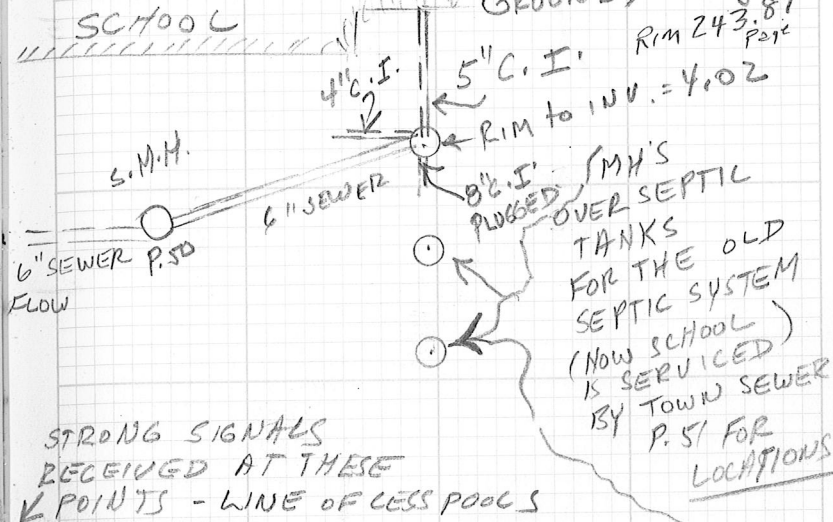 SCHOOL
GROUNDS
RIM 243.81
Page
4" C.I.
5" C.I.
RIM to INV. = 4.02
S.M.H.
6" SEWER
8" C.I.
PLUGGED
P.50
6" SEWER
FLOW
MH'S
OVER SEPTIC
TANKS
FOR THE OLD
SEPTIC SYSTEM
(NOW SCHOOL
IS SERVICED)
BY TOWN SEWER
P. 51 FOR
LOCATIONS
STRONG SIGNALS
RECEIVED AT THESE
POINTS - LINE OF CESSPOOLS